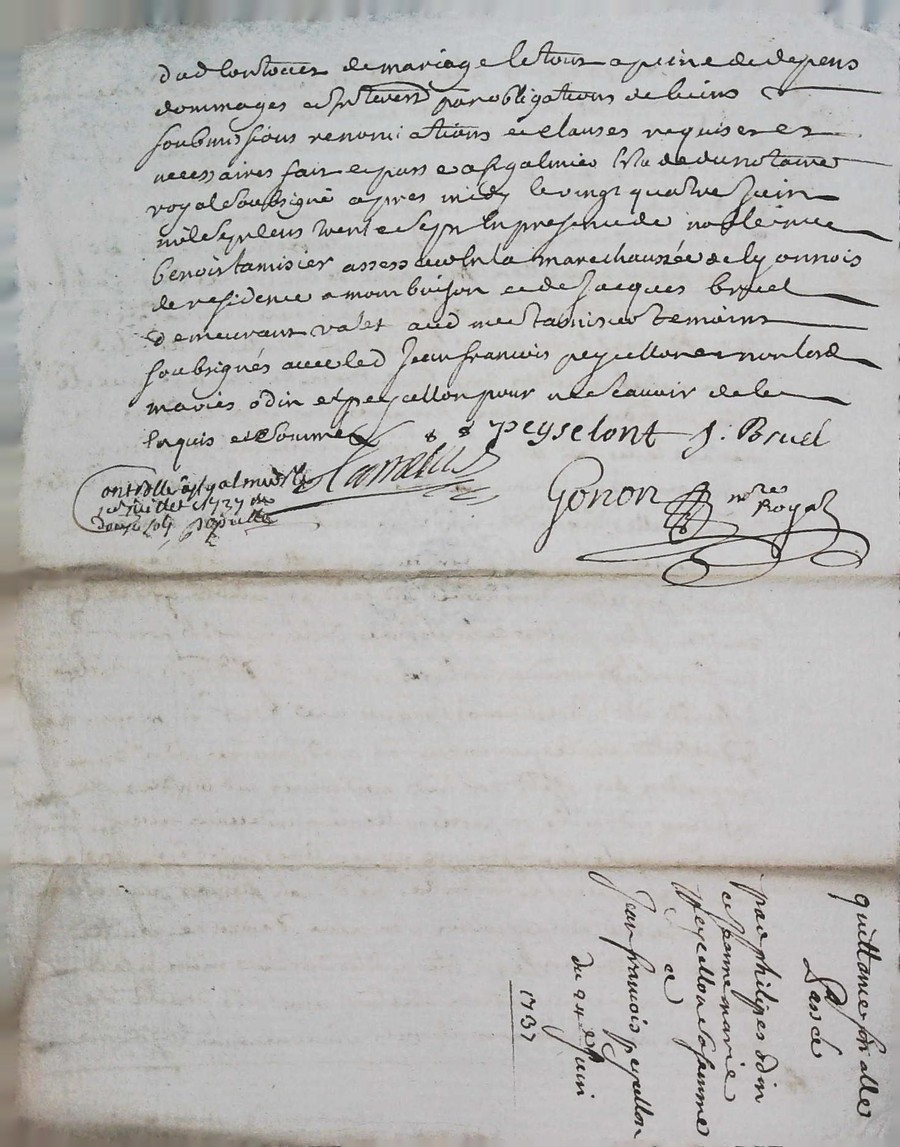 dud contract de mariage le tout a peine de depens
dommages et interests par obligations de biens
soubmissions renonciations et clauses requises et
necessaires fait et passé a st galmier Etude du notaire
royal soubsigné apres midy le vingt quatre Juin
mil sept cens trente sept En presence de noble
benoist tamisier assesseur En la marechaussée de lyonnois
de residence a montbrison et de Jacques bruel
demeurant valet aud tamisier temoins
soubsignés avec led Jean francois peysellon et non lesd
mariés odin et peysellon pour ne scavoir de ce
Enquis et sommés
peyselont J. Bruel
Controllé a st galmier le
Juillet 1737
Gonon no.re
Royal
quittance finalle
passée
par philipes odin
et janne marie
peysellon sa femme
a
Jean francois peysellon
du 24e Juin
1737